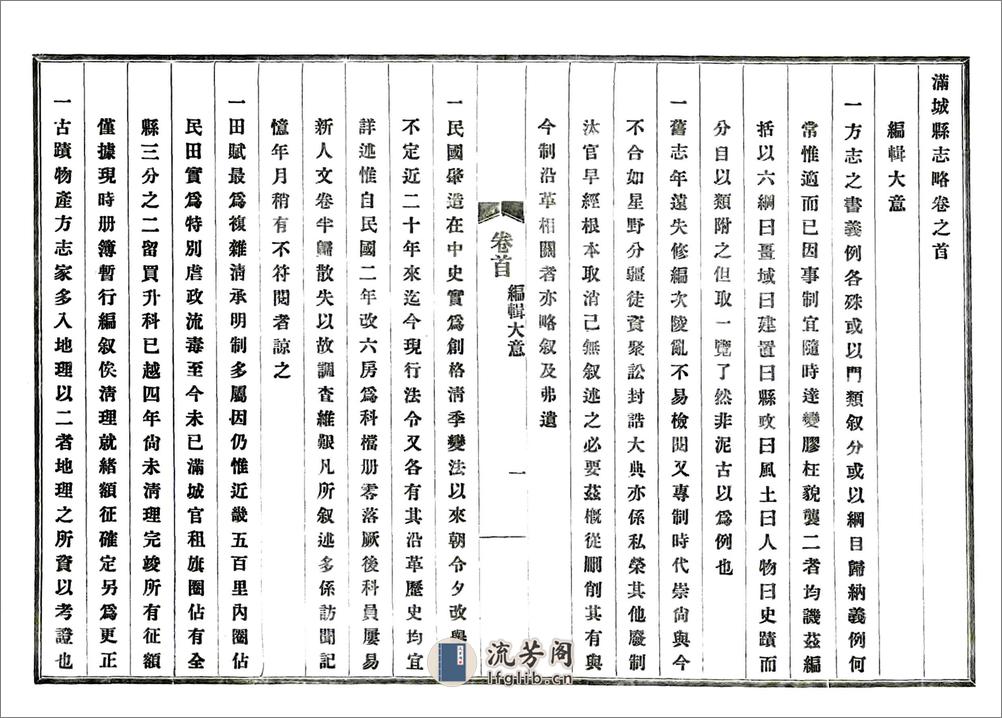 滿城縣志略卷之首
編輯大意
一方志之書義例各殊或以門類叙分或以綱目歸納義例何
常惟適而已因事制宜隨時達變膠柱貌襲二者均譏茲編
括以六綱曰畺域曰建置曰縣政曰風土曰人物曰史蹟而
分目以類附之但取一覽了然非泥古以爲例也
一舊志年遠失修編次陵亂不易檢閱又專制時代崇尙與今
不合如星野分疆徒資聚訟封誥大典亦係私榮其他廢制
汰官早經根本取消已無叙述之必要茲概從刪削其有與
今制沿革相關者亦略叙及弗遺
卷首
編輯大意
一
一民國肇造在中史實爲創格淸季變法以來朝令夕改與
不定近二十年來迄今現行法令又各有其沿革歷史均宜
詳述惟自民國二年改六房爲科檔册零落厥後科員屢易
新人文卷半歸散失以故調查維艱凡所叙述多係訪聞記
憶年月稍有不符閱者諒之
一田賦最爲複雜淸承明制多屬因仍惟近畿五百里內圈佔
民田實爲特別虐政流毒至今未已滿城官租旗圈佔有全
縣三分之二留買升科已越四年尙未淸理完竣所有征額
僅據現時册簿暫行編叙俟淸理就緒額征確定另爲更正
一古蹟物產方志家多入地理以二者地理之所資以考證也
流芳阁
lfglib.cn